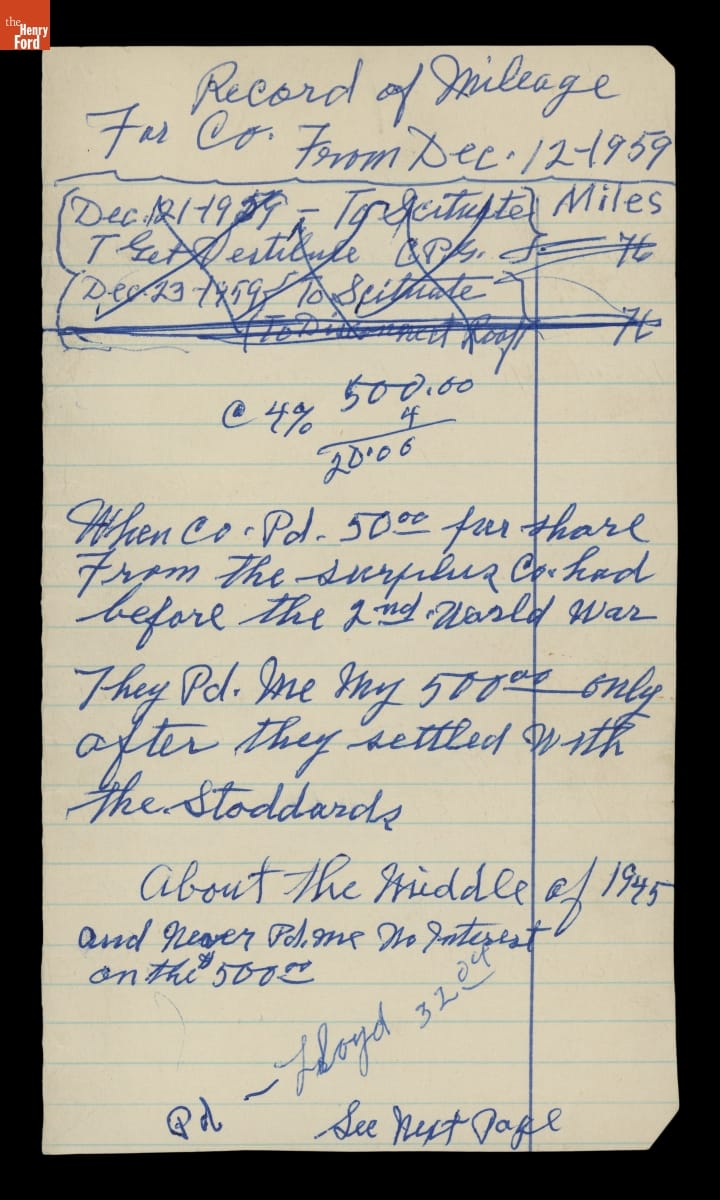 the
Henry
Ford
Record of Mileage
For Co. From Dec. 12-1959
Dec. 21-1959 - To Scituate Miles
T Get Destitute C.P.G. 76
Dec-23-1959 To Scituate
To Disconnect Roof 76
500.00
@ 4% 4
20.00
When Co. Pd. 50 00 fur share
From the surplus Co. had
before the 2nd. World War
They Pd. Me My 500 00 only
after they settled With
the Stoddards
About the Middle of 1945
and Never Pd. me No Interest
on the $500 00
Lloyd 32 04
Pd - See Next Page